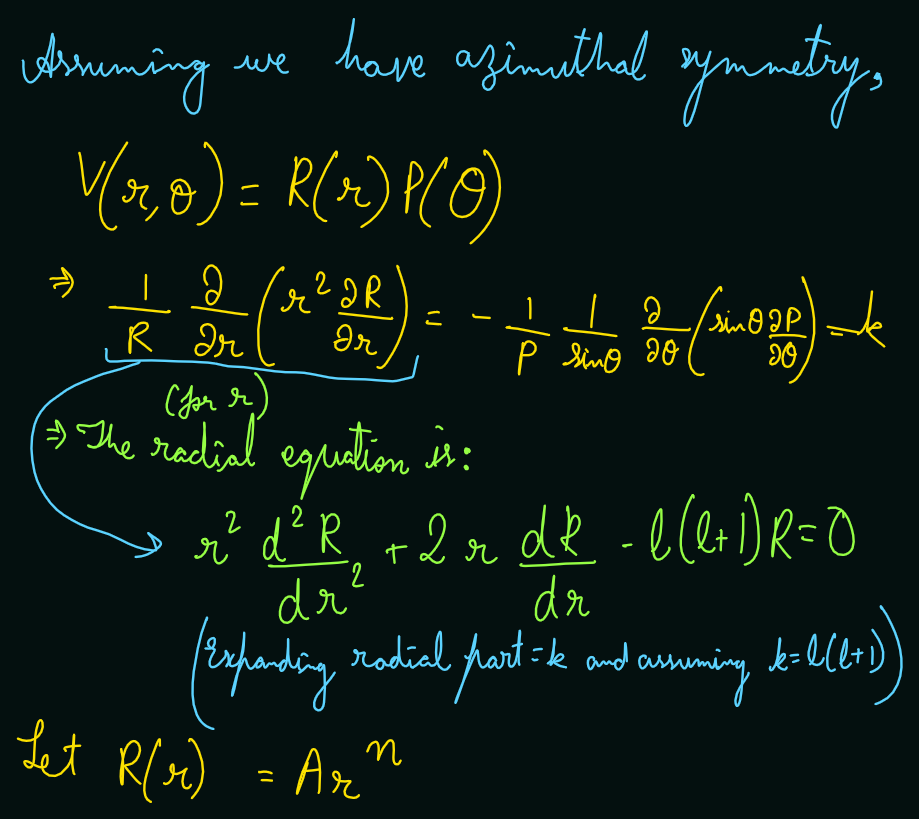 Assuming we have azimuthal symmetry,
V(r,θ) = R(r) P(θ)
⇒ 1/R ∂/∂r (r² ∂R/∂r) = - 1/P 1/sinθ ∂/∂θ (sinθ ∂P/∂θ) = k
(for r)
⇒ The radial equation is:
r² d²R/dr² + 2 r dR/dr - l(l+1)R = 0
(Expanding radial part = k and assuming k = l(l+1))
Let R(r) = Arⁿ